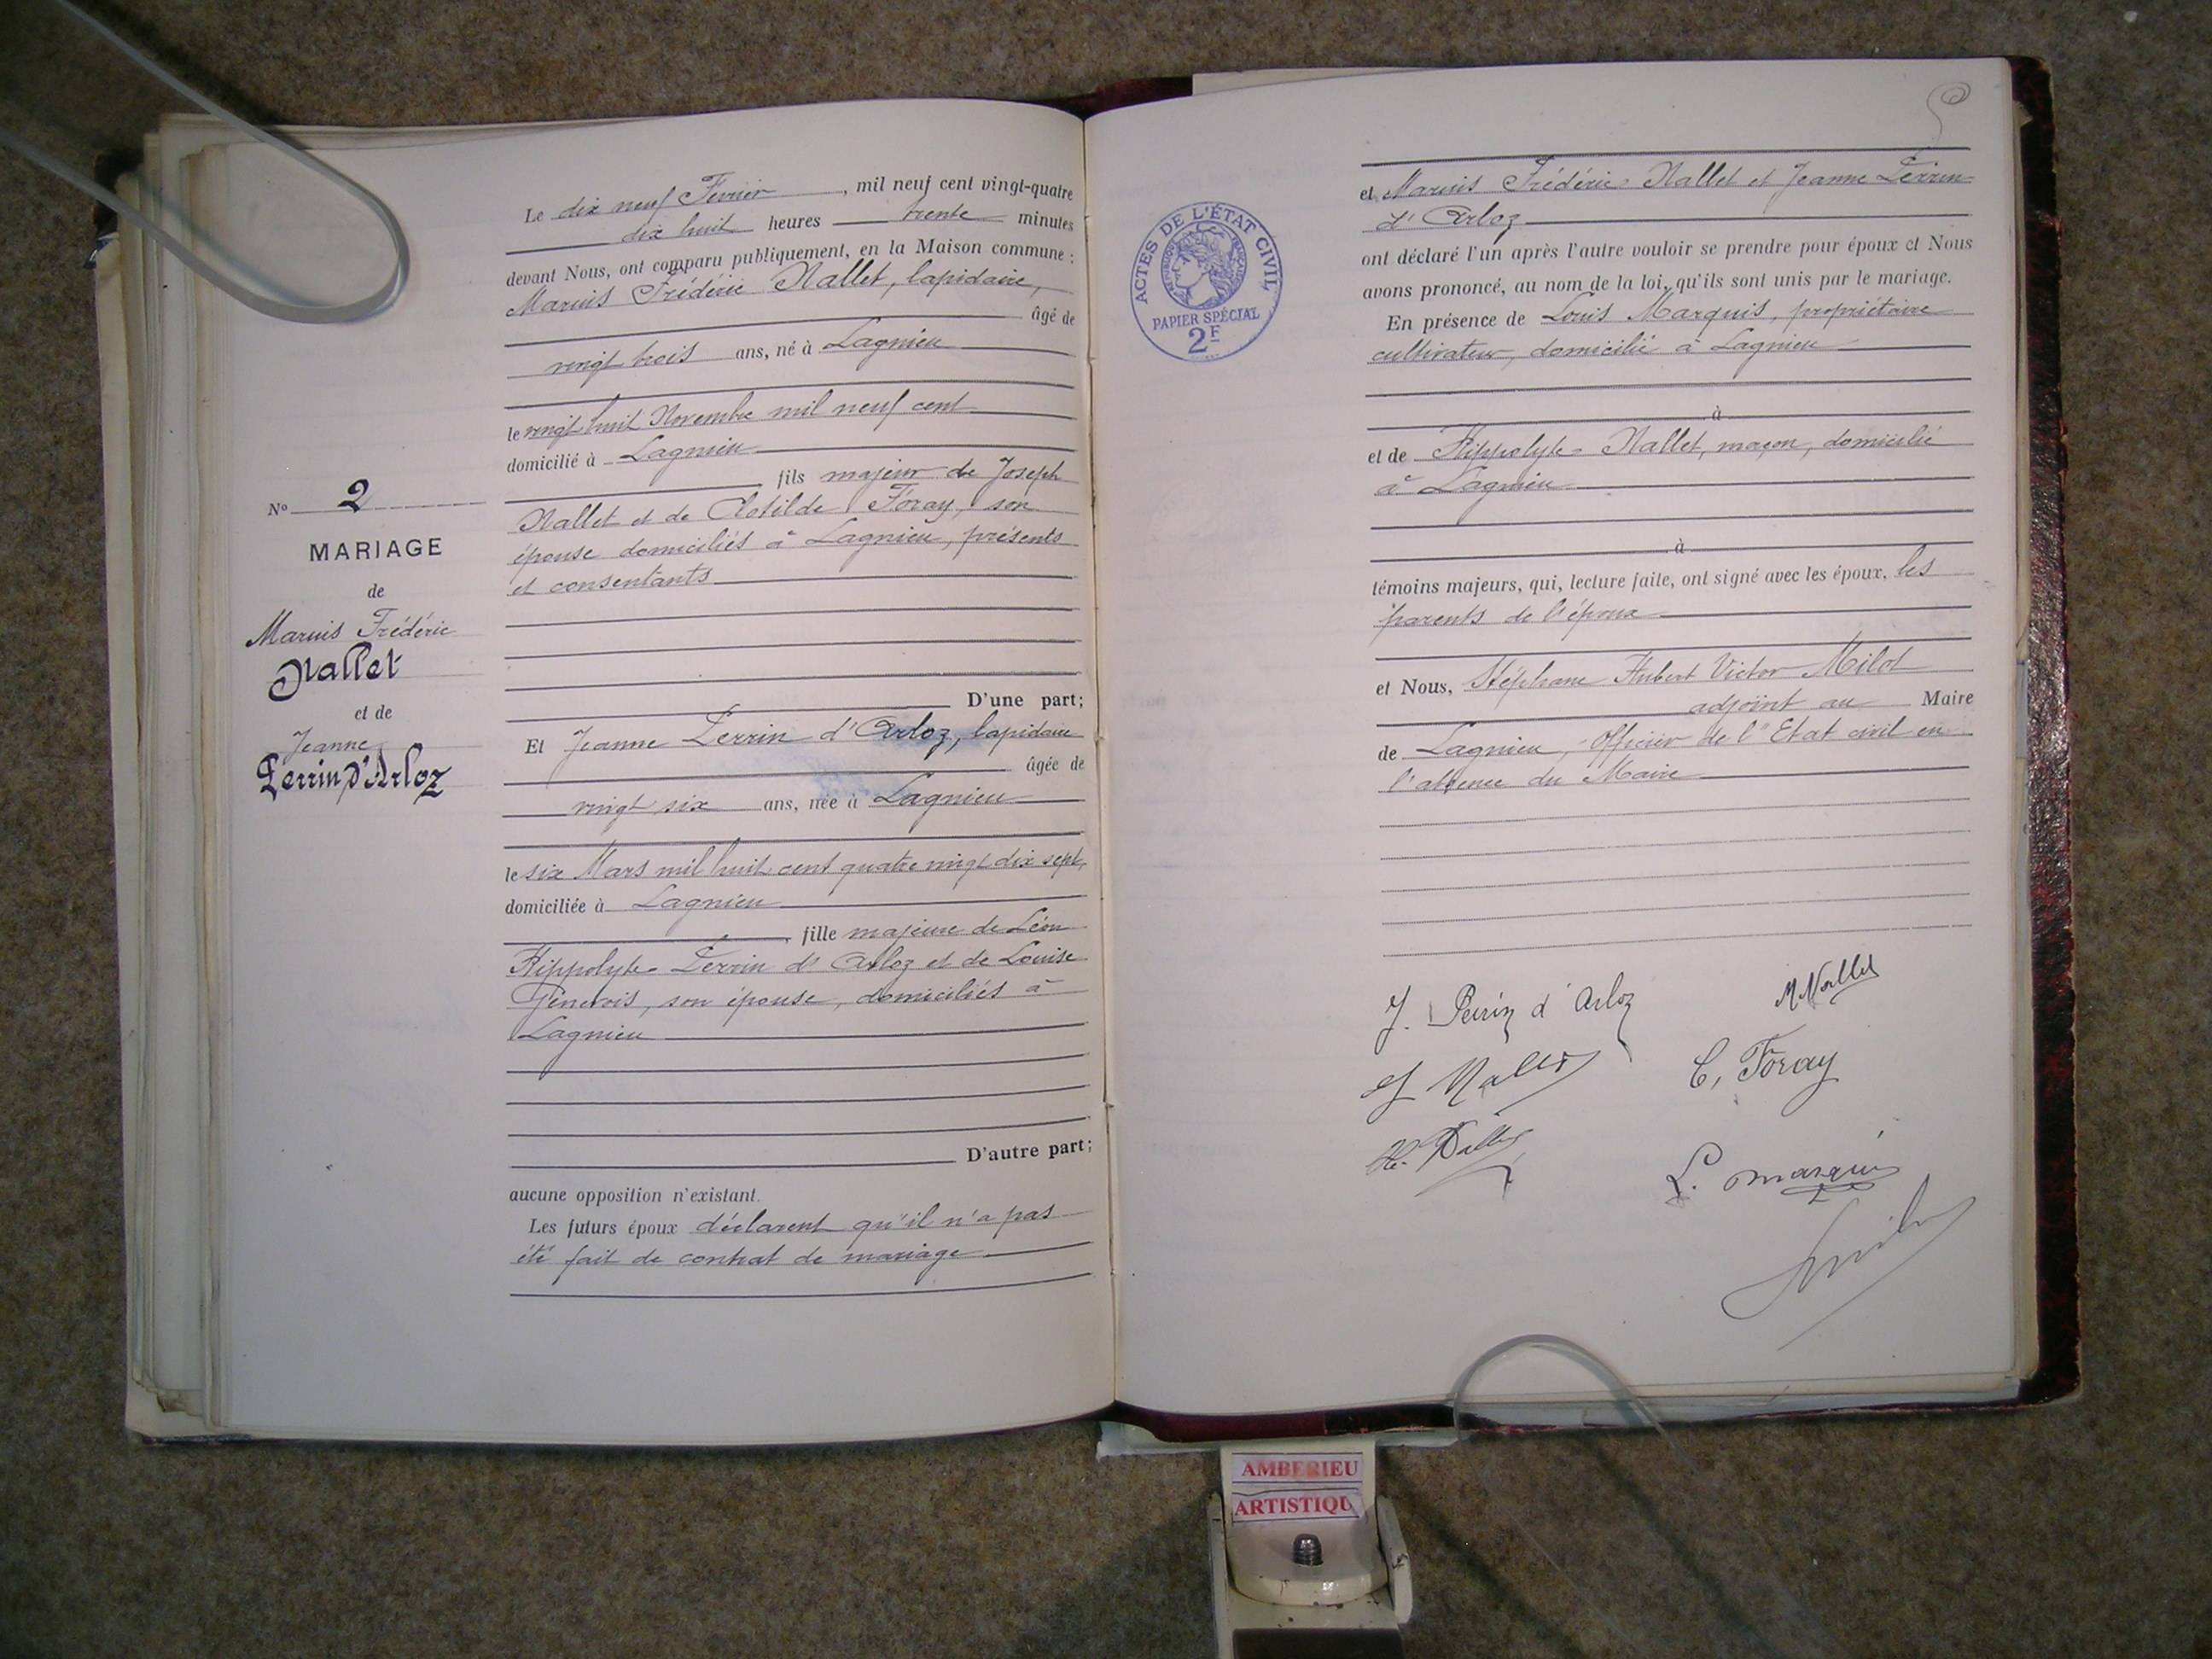 Le dix neuf Février, mil neuf cent vingt-quatre
dix huit heures trente minutes
devant Nous, ont comparu publiquement, en la Maison commune :
Marius Frédéric Nallet, lapidaire,
âgé de
vingt trois ans, né à Lagnieu
le vingt huit Novembre mil neuf cent
domicilié à Lagnieu
fils majeur de Joseph
Nallet et de Clotilde Foray, son
épouse domiciliés à Lagnieu, présents
et consentants
No 2
MARIAGE
de
Marius Frédéric
Nallet
et de
Jeanne
Perrin d'Arloz
D'une part;
Et Jeanne Perrin d'Arloz, lapidaire
âgée de
vingt six ans, née à Lagnieu
le six Mars mil huit cent quatre vingt dix sept,
domiciliée à Lagnieu
, fille majeure de Léon
Hippolyte Perrin d'Arloz et de Louise
Génevois, son épouse, domiciliés à
Lagnieu
D'autre part;
aucune opposition n'existant.
Les futurs époux déclarent qu'il n'a pas
été fait de contrat de mariage
ACTES DE L'ÉTAT CIVIL
RÉPUBLIQUE FRANÇAISE
PAPIER SPÉCIAL
2F
et Marius Frédéric Nallet et Jeanne Perrin
d'Arloz
ont déclaré l'un après l'autre vouloir se prendre pour époux et Nous
avons prononcé, au nom de la loi, qu'ils sont unis par le mariage.
En présence de Louis Marquis, propriétaire
cultivateur, domicilié à Lagnieu
à
et de Hippolyte Nallet, maçon, domicilié
à Lagnieu
à
témoins majeurs, qui, lecture faite, ont signé avec les époux, les
parents de l'époux
et Nous, Stéphane Hubert Victor Milot
adjoint au Maire
de Lagnieu, Officier de l'Etat civil en
l'absence du Maire
J. Perrin d'Arloz
M Nallet
J Nallet
C, Foray
H. Nallet
L. marquis
Milot
AMBERIEU
ARTISTIQU